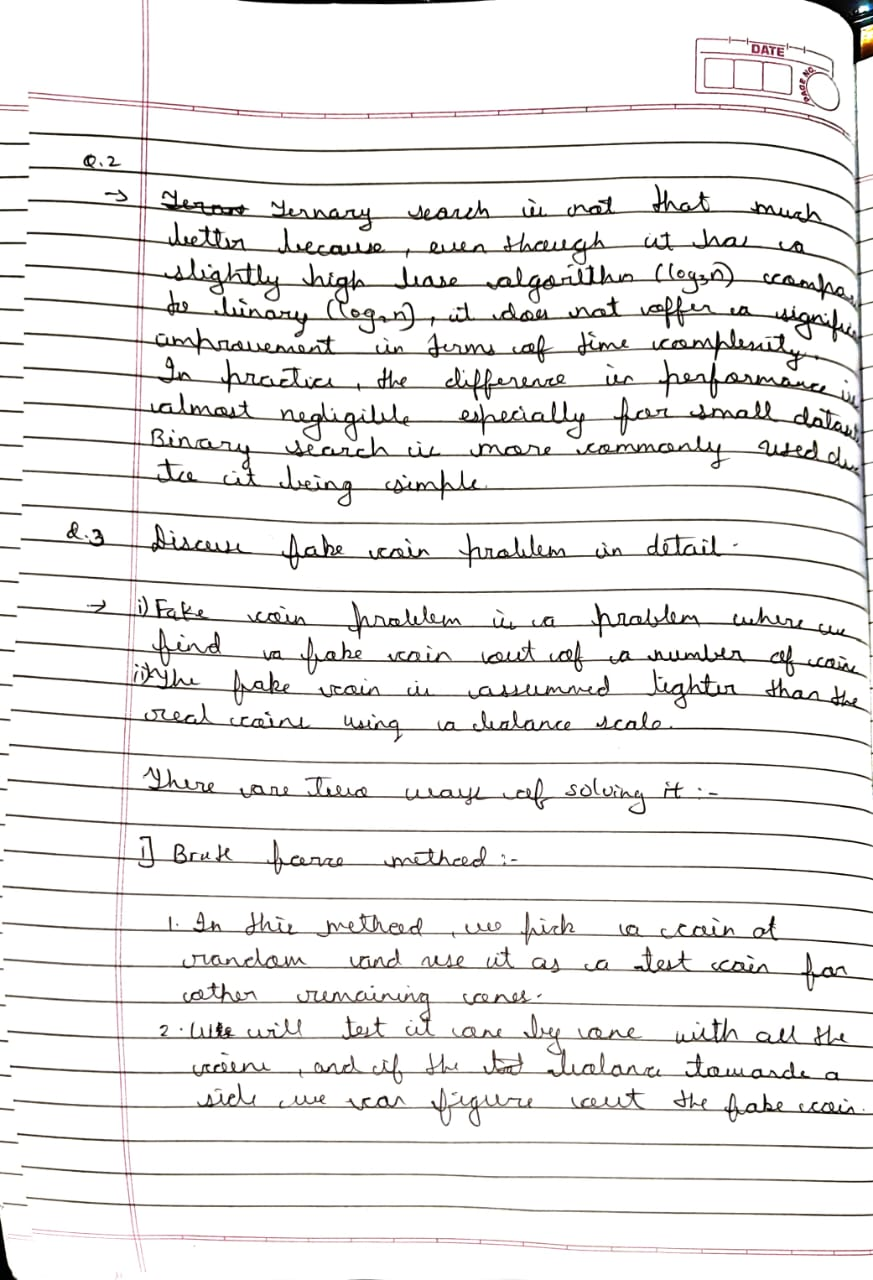 DATE
PAGE NO.
Q.2
→ Ternary search is not that much
better because, even though it has a
slightly high base algorithm (log₃n) compa
to binary (log₂n), it does not offer a signific
improvement in terms of time complexity.
In practice, the difference in performance is
almost negligible especially for small datas
Binary search is more commonly used du
to it being simple.
Q.3 Discuss fake coin problem in detail.
→ i) Fake coin problem is a problem where we
find a fake coin out of a number of coins
ii) The fake coin is assummed lighter than the
real coins using a balance scale.
There are two ways of solving it :-
I] Brute force method :-
1. In this method, we pick a coin at
random and use it as a test coin for
other remaining cones.
2. We will test it one by one with all the
coins, and if the balance towards a
side we can figure out the fake coin.